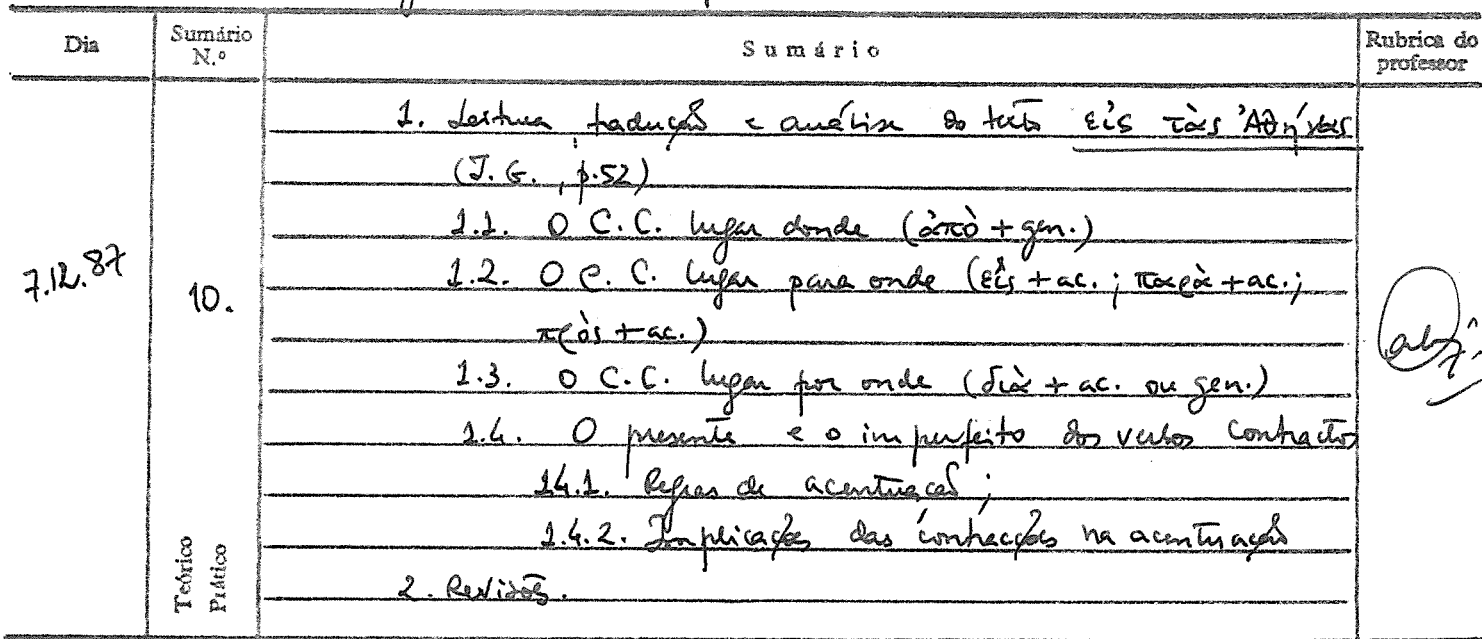 Dia
Sumário N.º
Sumário
Rubrica do professor
7.12.87
10.
Teórico
Prático
1. Leitura tradução e análise do texto εἰς τὰς Ἀθήνας
(J. G., p.52)
1.1. O C.C. lugar donde (ἀπὸ + gen.)
1.2. O C.C. lugar para onde (εἰς + ac.; παρὰ + ac.;
πρὸς + ac.)
1.3. O C.C. lugar por onde (διὰ + ac. ou gen.)
1.4. O presente e o imperfeito dos verbos contractos
1.4.1. Regras de acentuação;
1.4.2. Implicações das contracções na acentuação
2. Revisões.